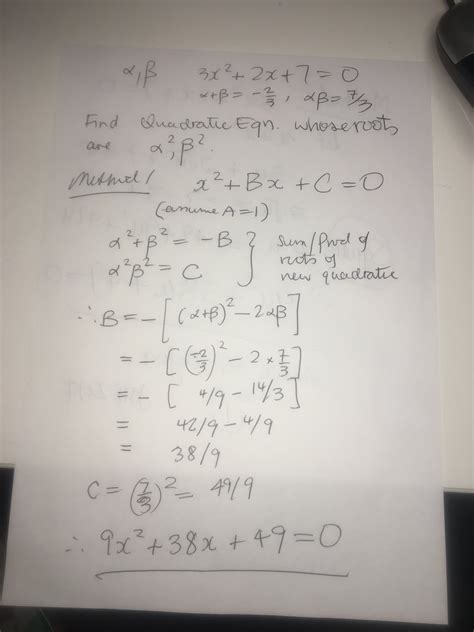 α,β 3x²+2x+7=0
α+β=-2/3, αβ=7/3
Find Quadratic Eqn. whose roots
are α²,β².
Method 1 x²+Bx+C=0
(assume A=1)
α²+β²=-B } sum/prod of
α²β²=C } roots of
new quadratic
∴B=-[(α+β)²-2αβ]
=-[(-2/3)²-2×7/3]
=-[4/9-14/3]
= 42/9-4/9
= 38/9
C=(7/3)²=49/9
∴ 9x²+38x+49=0